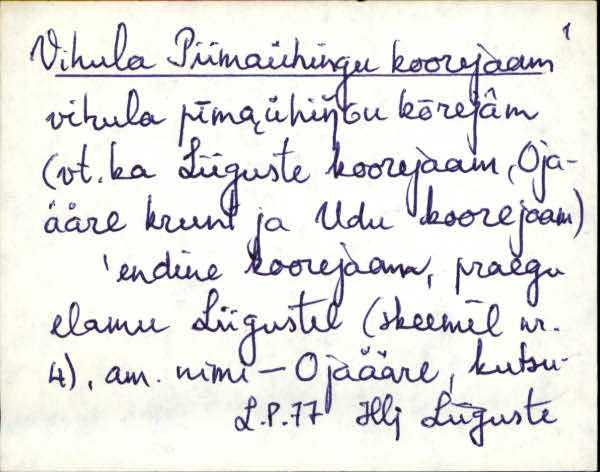 1
Vihula Piimaühingu koorejaam
vihula pīmaühiŋ̀gu kōrejâm
(vt. ka Liiguste koorejaam, Oja-
ääre krunt ja Udu koorejaam)
'endine koorejaam, praegu
elamu Liigustel (skeemil nr.
4), am. nimi – Ojaääre, kutsu-
L.P. 77 Hlj Liiguste